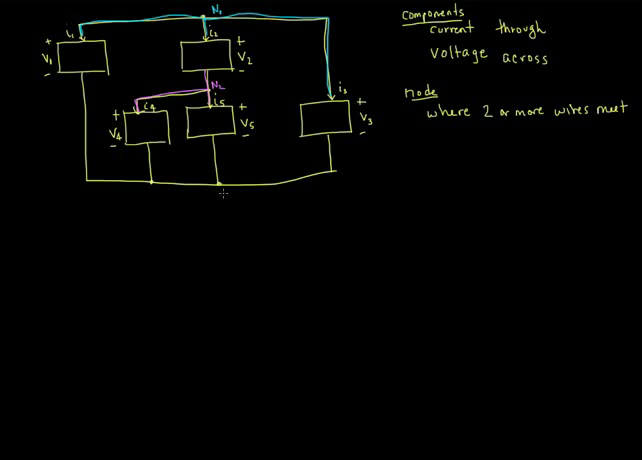 N₁
i₁
i₂
+
V₁
-
+
V₂
-
N₂
i₄
i₅
+
V₄
-
+
V₅
-
i₃
+
V₃
-
Components
current through
Voltage across
node
where 2 or more wires meet